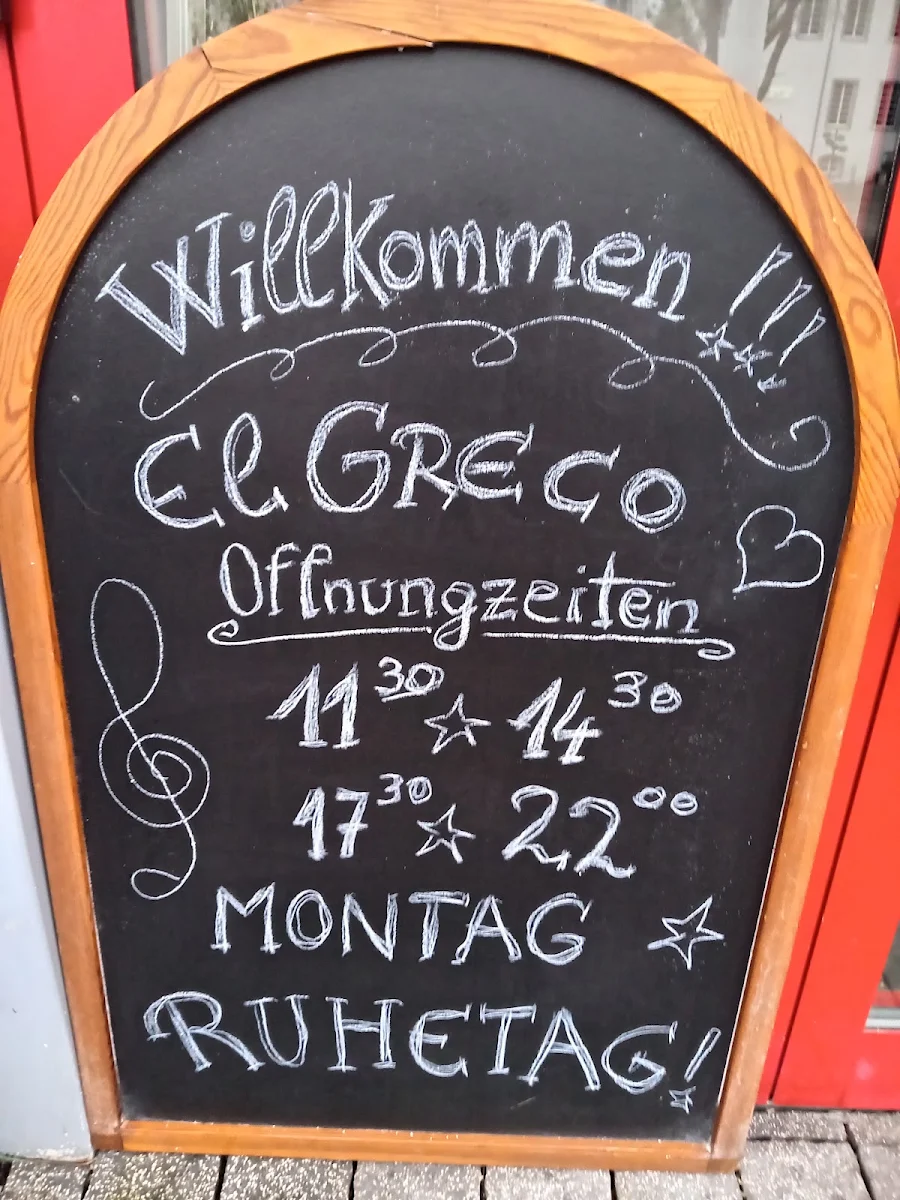 Willkommen !!!
El GRECO
Offnungzeiten
11³⁰ ☆ 14³⁰
17³⁰ ☆ 22⁰⁰
MONTAG ☆
RUHETAG!